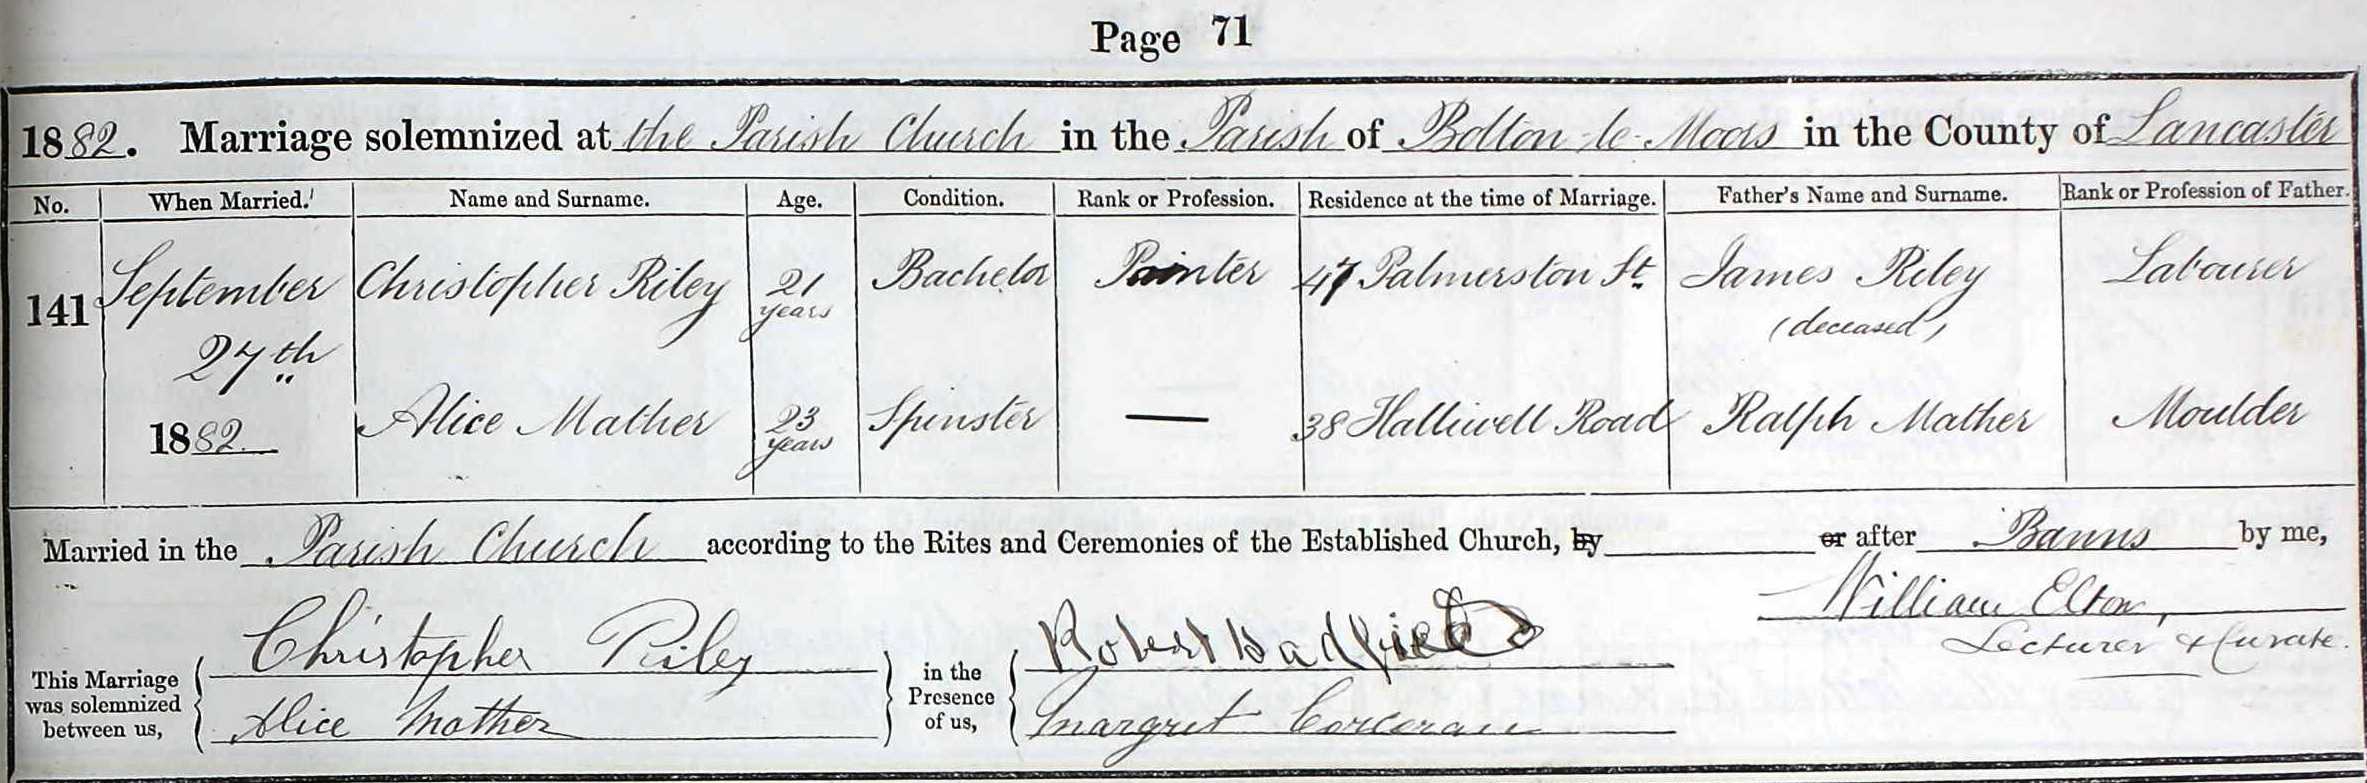 Page 71
1882. Marriage solemnized at the Parish Church in the Parish of Bolton-le-Moors in the County of Lancaster
No. When Married. Name and Surname. Age. Condition. Rank or Profession. Residence at the time of Marriage. Father's Name and Surname. Rank or Profession of Father.
141 September 27th 1882 Christopher Riley 21 years Bachelor Painter 47 Palmerston St. James Riley (deceased) Labourer
Alice Mather 23 years Spinster — 38 Halliwell Road Ralph Mather Moulder
Married in the Parish Church according to the Rites and Ceremonies of the Established Church, by or after Banns by me,
William Elton,
Lecturer & Curate.
This Marriage was solemnized between us, Christopher Riley Alice Mather in the Presence of us, Robert Hadfield Margret Corcoran